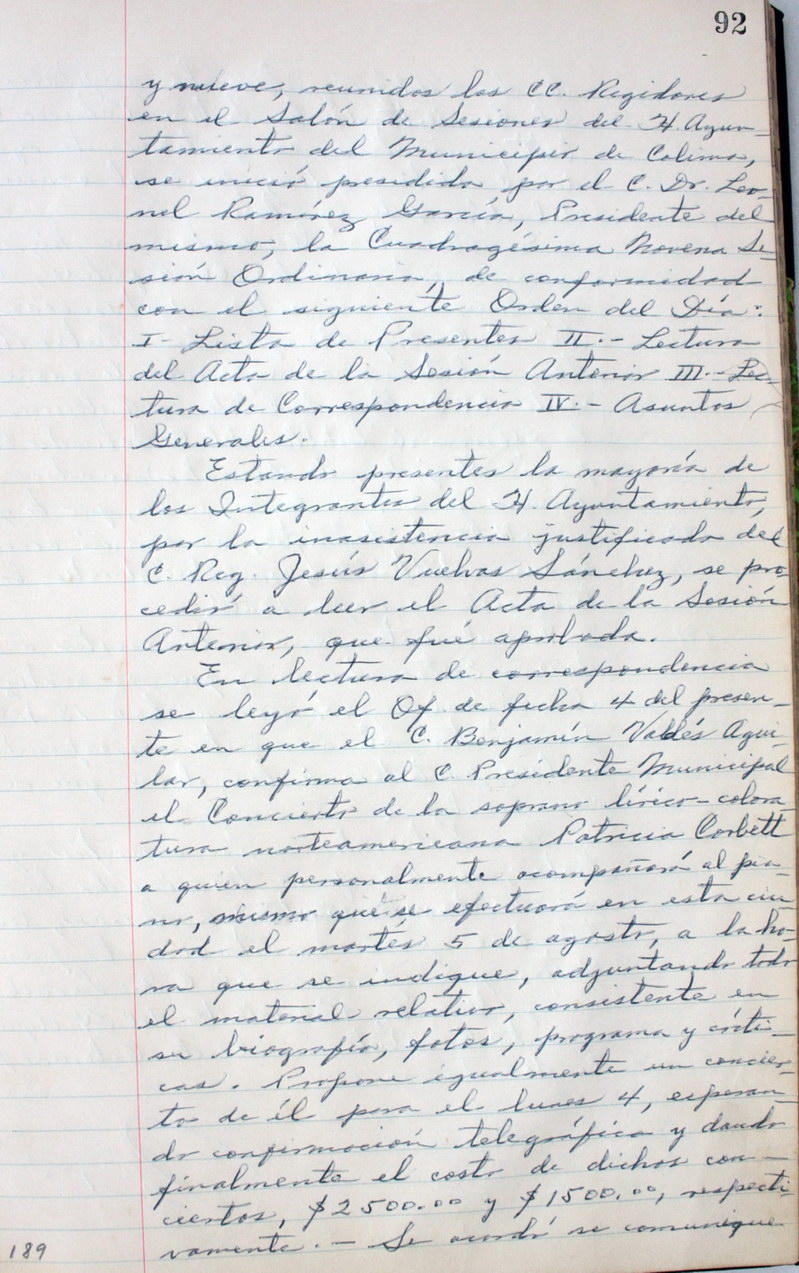 92
y nueve, reunidos los CC. Regidores
en el Salón de Sesiones del H. Ayun-
tamiento del Municipio de Colima,
se inició presidida por el C. Dr. Leo-
nel Ramírez García, Presidente del
mismo, la Cuadragésima Novena Se-
sión Ordinaria, de conformidad
con el siguiente Orden del Día:
I- Lista de Presentes II.- Lectura
del Acta de la Sesión Anterior III.- Lec-
tura de Correspondencia IV.- Asuntos
Generales.
Estando presentes la mayoría de
los Integrantes del H. Ayuntamiento,
por la inasistencia justificada del
C. Reg. Jesús Vuelvas Sánchez, se pro-
cedió a leer el Acta de la Sesión
Anterior, que fué aprobada.
En lectura de correspondencia
se leyó el Of de fecha 4 del presen-
te en que el C. Benjamín Valdés Agui-
lar, confirma al C. Presidente Municipal
el Concierto de la soprano lírico-colora-
tura norteamericana Patricia Corbett
a quien personalmente acompañará al pia-
no, mismo que se efectuará en esta ciu-
dad el martes 5 de agosto, a la ho-
ra que se indique, adjuntando todo
el material relativo, consistente en
su biografía, fotos, programa y críti-
cas. Propone igualmente un concier-
to de él para el lunes 4, esperan-
do confirmación telegráfica y dando
finalmente el costo de dichos con-
ciertos, $2500.00 y $1500.00, respecti-
vamente. - Se acordó se comunique
189